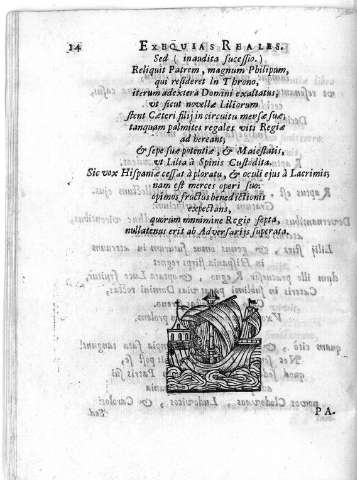 14 EXEQUIAS REALES.
Sed ( inaudita sucessio.)
Reliquit Patrem, magnum Philipum,
qui resideret In Throno,
iterum adexterà Domini exaltatus,
vt sicut novellæ Liliorum
stent Cæteri filij in circuitu mensæ suæ,
tanquam palmites regales viti Regiæ
ad hereant,
& sepe suæ potentiæ, & Maiestatis,
vt Lilia à Spinis Custodita.
Sic vox Hispaniæ cessat à ploratu, & oculi ejus à Lacrimis,
nam est merces operi suo:
opimos fructus benedictionis
expectans,
quorum munimine Regio septa,
nullatenus erit ab Adversarijs superata.
PA.